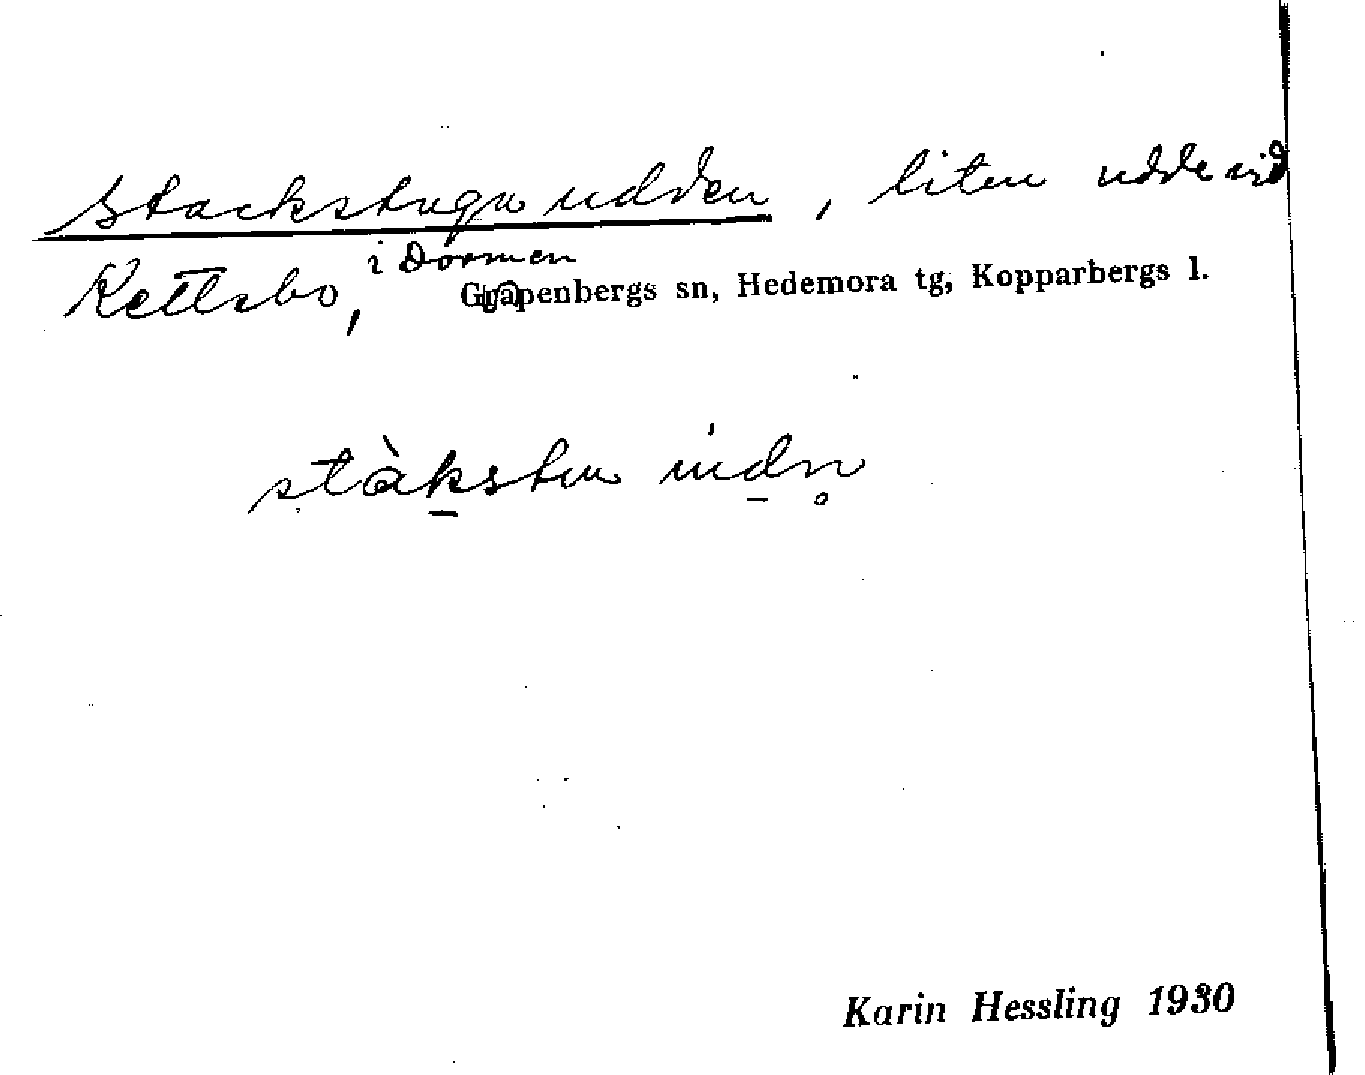 Stackstuguudden, liten udde vid
i Dormen
Kettsbo, Garpenbergs sn, Hedemora tg, Kopparbergs l.
Karin Hessling 1930